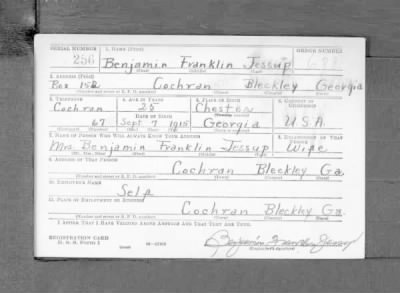 SERIAL NUMBER 1. NAME (Print) ORDER NUMBER
256 Benjamin Franklin Jessup
(First) (Middle) (Last)
2. ADDRESS (Print)
Box 152 Cochran Bleckley Georgia
(Number and street or R. F. D. number) (Town) (County) (State)
3. TELEPHONE 4. AGE IN YEARS 5. PLACE OF BIRTH 6. COUNTRY OF CITIZENSHIP
Cochran 25 Chester
DATE OF BIRTH
67 Sept. 7 1915 Georgia U.S.A.
(Exchange) (Number) (Mo.) (Day) (Yr.) (State or country)
7. NAME OF PERSON WHO WILL ALWAYS KNOW YOUR ADDRESS 8. RELATIONSHIP OF THAT PERSON
Mrs. Benjamin Franklin Jessup Wife
(Mr., Mrs., Miss) (First) (Middle) (Last)
9. ADDRESS OF THAT PERSON
Cochran Bleckley Ga.
(Number and street or R. F. D. number) (Town) (County) (State)
10. EMPLOYER'S NAME
Self
11. PLACE OF EMPLOYMENT OR BUSINESS
Cochran Bleckley Ga.
(Number and street or R. F. D. number) (Town) (County) (State)
I AFFIRM THAT I HAVE VERIFIED ABOVE ANSWERS AND THAT THEY ARE TRUE.
REGISTRATION CARD
D. S. S. Form 1 Benjamin Franklin Jessup
(Registrant's signature)